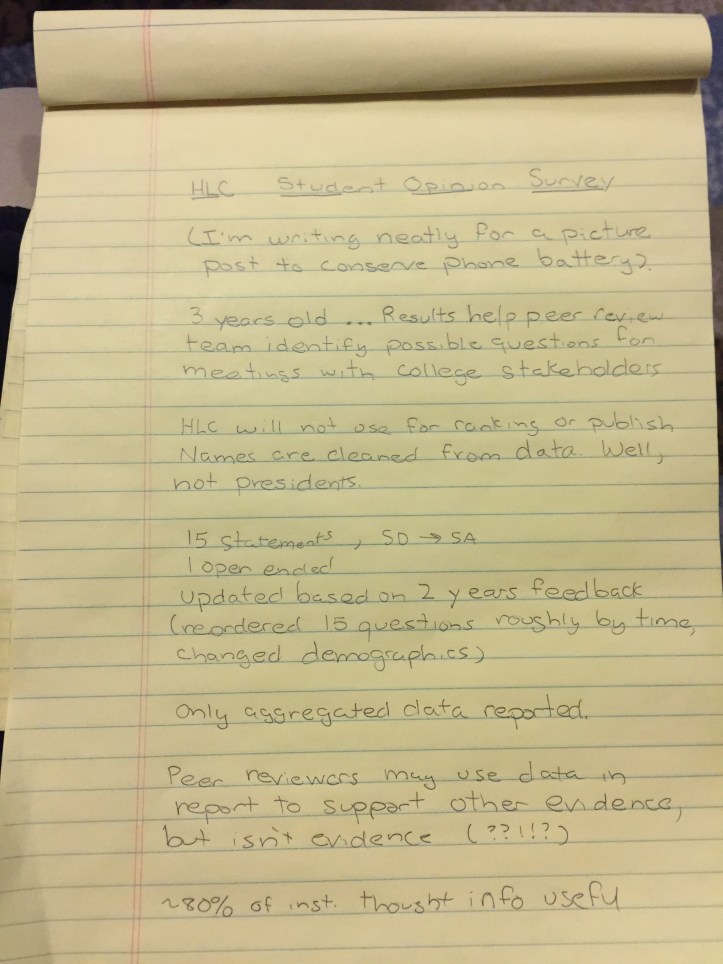 HLC Student Opinion Survey
(I'm writing neatly for a picture
post to conserve phone battery).
3 years old ... Results help peer review
team identify possible questions for
meetings with college stakeholders
HLC will not use for ranking or publish
Names are cleaned from data. Well,
not presidents.
15 statements, SD → SA
1 open ended
Updated based on 2 years feedback
(reordered 15 questions roughly by time,
changed demographics)
Only aggregated data reported.
Peer reviewers may use data in
report to support other evidence,
but isn't evidence (??!!?)
~80% of inst. thought info useful